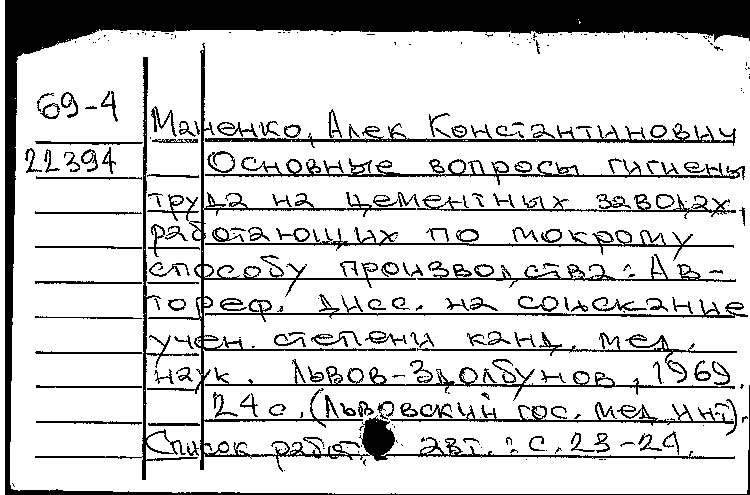 69-4
22394
Маненко, Алек Константинович
Основные вопросы гигиены
труда на цементных заводах,
работающих по мокрому
способу производства: Ав-
тореф. дисс. на соискание
учен. степени канд. мед.
наук. Львов-Здолбунов, 1969.
24 с. (Львовский гос. мед. ин-т).
Список работ авт.: с. 23-24.